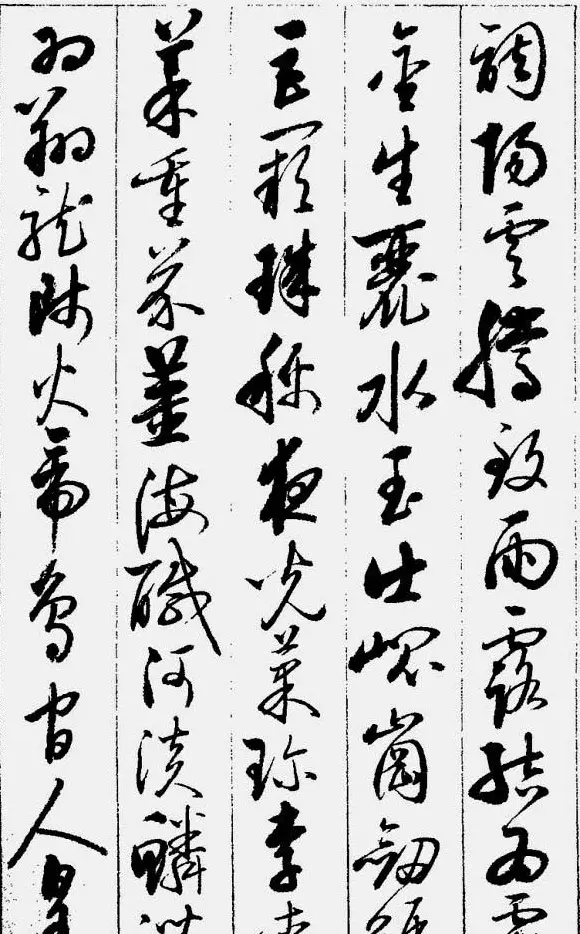 調陽雲騰致雨露結為
金生麗水玉出崐崗劍
巨闕珠稱夜光菓珍李
菜重芥薑海醎河淡鱗
羽翔龍師火帝鳥官人皇